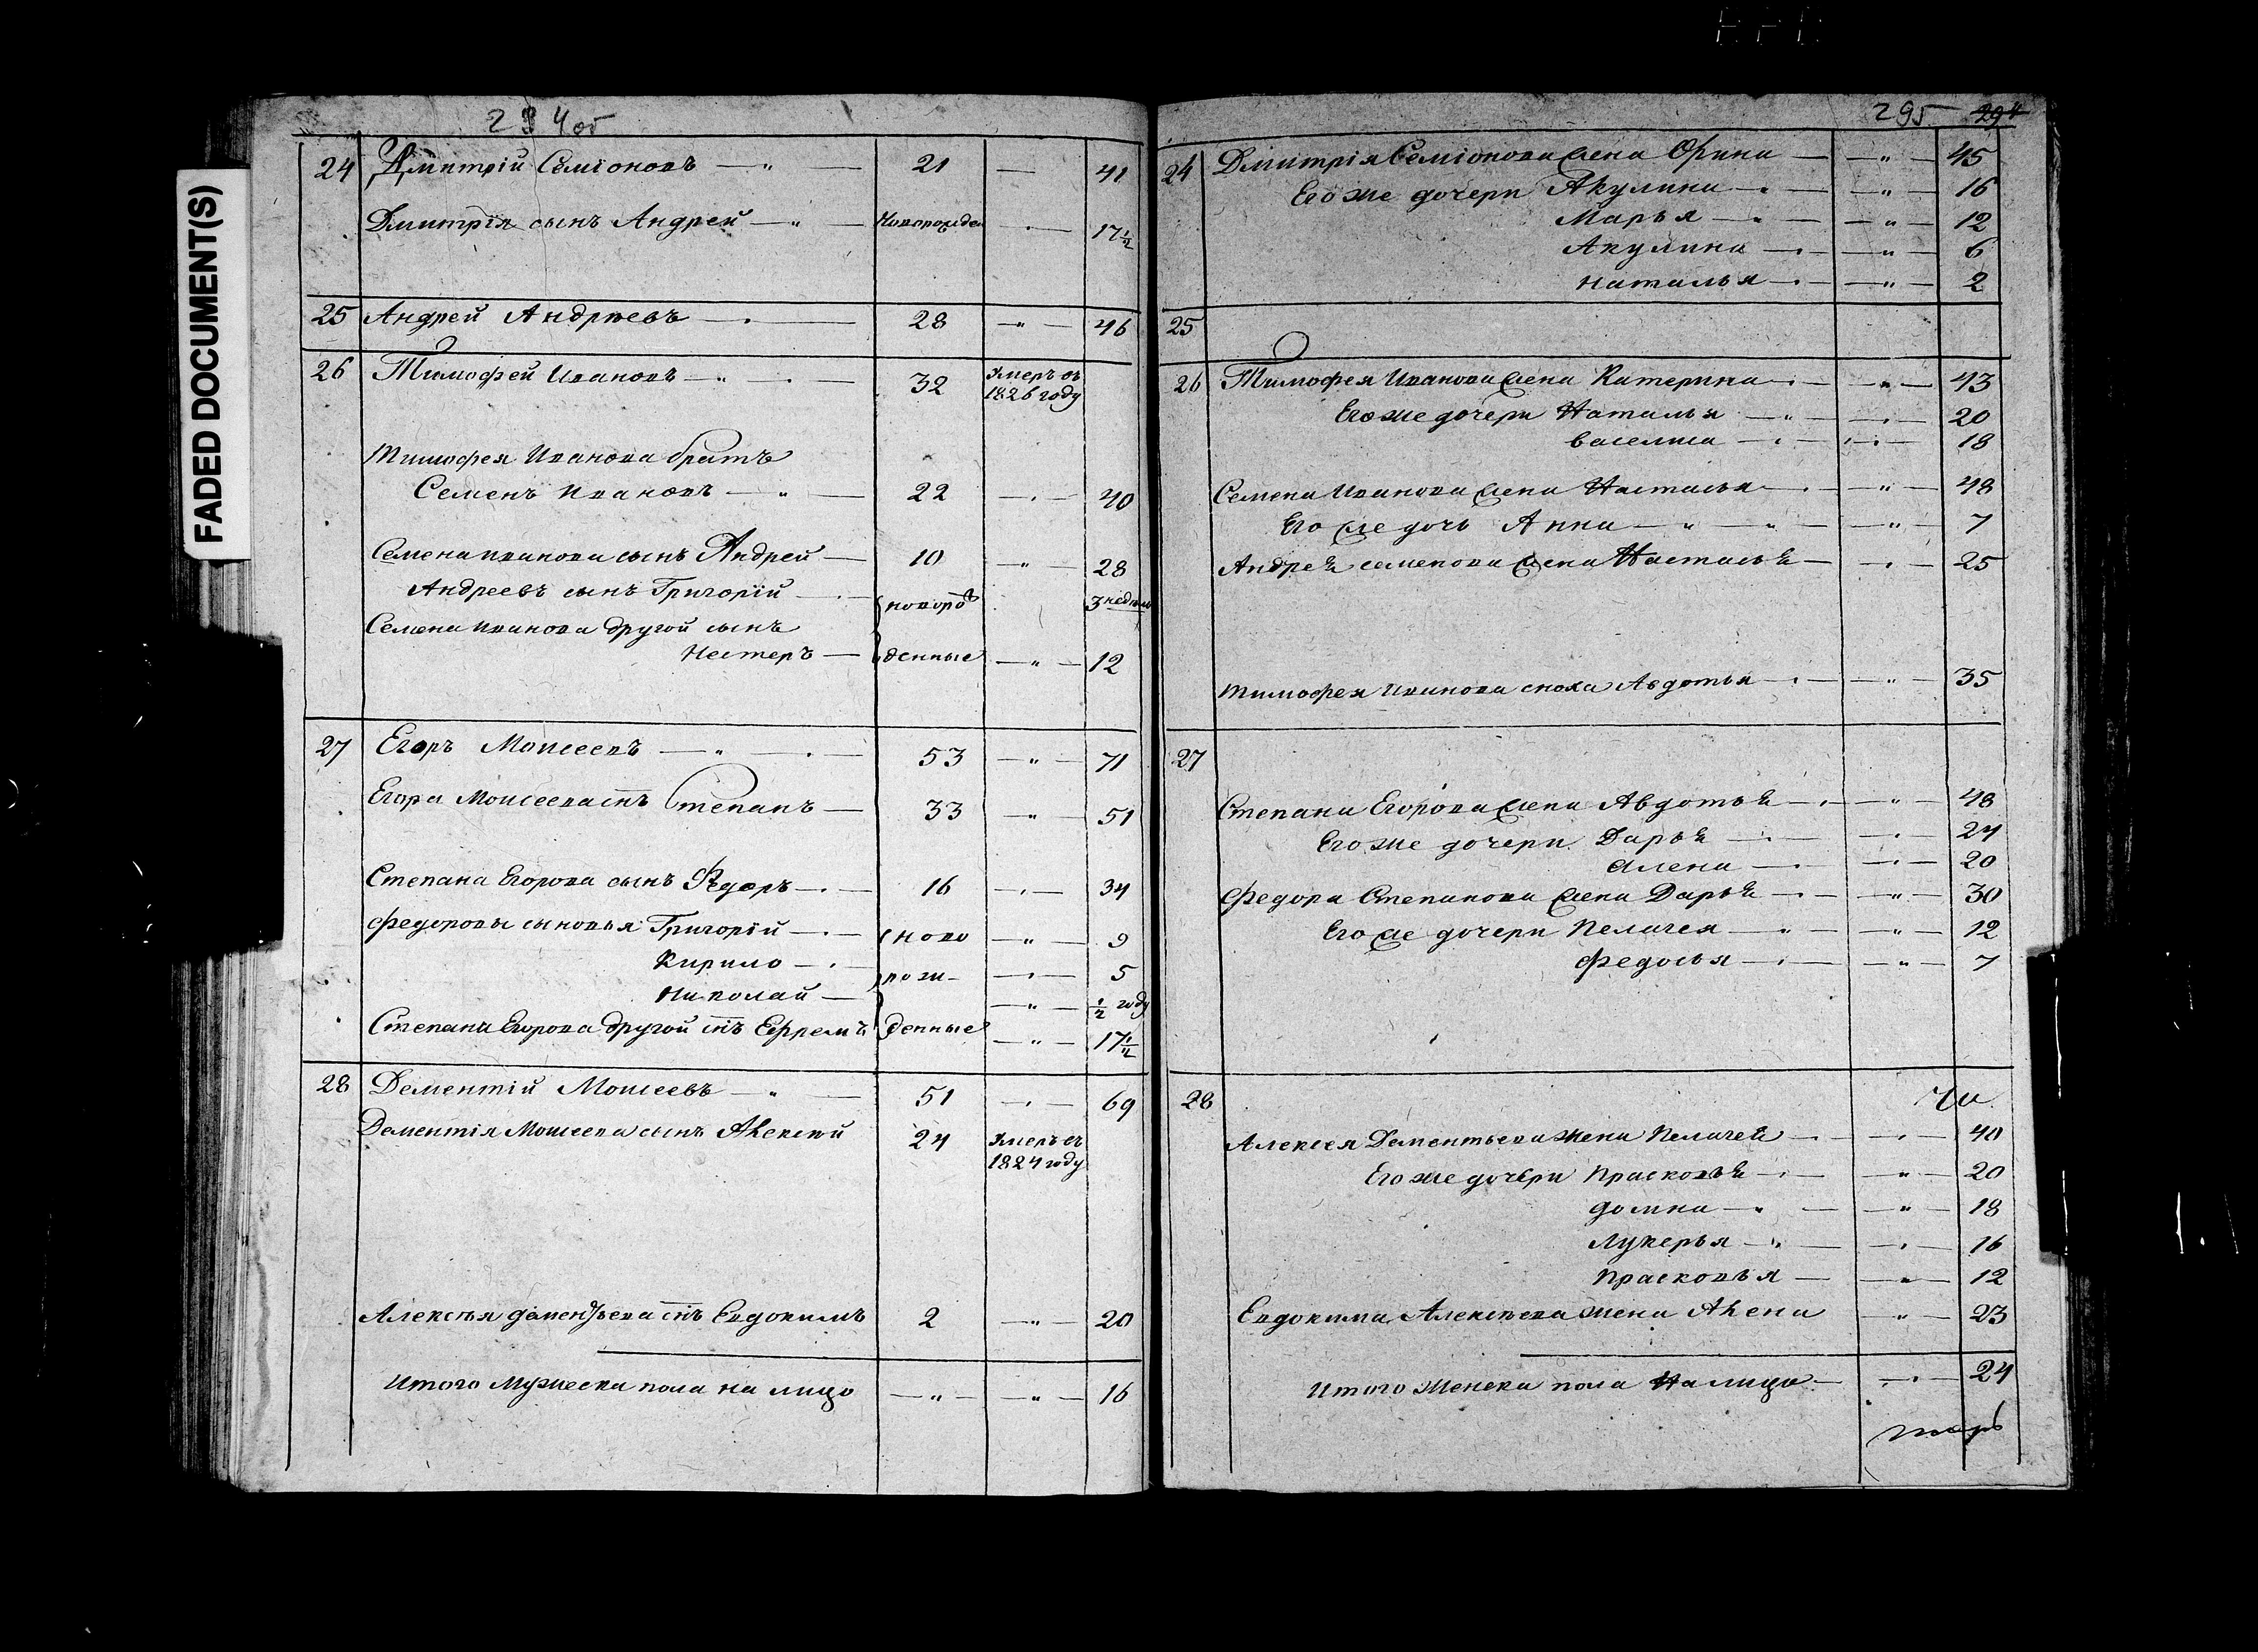 FADED DOCUMENT(S)
294об
24 Дмитрій Семіоновъ — „ — 21 — 41
Дмитрія сынъ Андрей — „ — новорожден — 17 1/2
25 Андрей Андреевъ — 28 — „ — 46
26 Тимофей Ивановъ — „ — 32 умеръ въ 1826 году
Тимофея Иванова братъ
Семенъ Ивановъ — „ — 22 — 40
Семена Иванова сынъ Андрей — 10 — „ — 28
Андреевъ сынъ Григорій — новоро 3 недели
Семена Иванова другой сынъ
Нестеръ — жденные — „ — 12
27 Егоръ Моисеевъ — „ — 53 — „ — 71
Егора Моисеева снъ Степанъ — 33 — „ — 51
Степана Егорова сынъ Федоръ — 16 — 34
Федоровы сыновья Григорій — ново — „ — 9
Кирило — рож- — 5
Николай — — „ — 1/2 году
Степана Егорова другой снъ Ефремъ денные — „ — 17 1/2
28 Дементій Моисеевъ — „ — 51 — 69
Дементія Моисеева сынъ Алексѣй 24 умеръ въ
1824 году
Алексѣя дементьева снъ Евдокимъ 2 — „ — 20
Итого Мужеска пола на лицо — „ — — „ — 16
295 294
24 Дмитрія Семіонова жена Орина — — „ — 45
Его же дочери Акулина — — „ — 16
Марья — — „ — 12
Акулина — — „ — 6
Наталья — — „ — 2
25
26 Тимофея Иванова жена Катерина — — „ — 43
Его же дочери Наталья — — 20
Василиса — — 18
Семена Иванова жена Настасья — — „ — 48
Его же дочь Анна — „ — „ — — „ — 7
Андрея семенова жена Настасья — — 25
Тимофея Иванова сноха Авдотья — — „ — 35
27
Степана Егорова жена Авдотья — — „ — 48
Его же дочери Дарья — — 24
Алена — — 20
Федора Степанова жена Дарья — — „ — 30
Его же дочери Пелагея — „ — — „ — 12
Федосья — — „ — 7
28
Алексея Дементьева жена Пелагея — — 40
Его же дочери Прасковья — — „ — 20
Домна — „ — — „ — 18
Лукерья — „ — — 16
Прасковья — — „ — 12
Евдокима Алексѣева жена Алена — „ — 23
Итого Женска пола На лицо — — 24